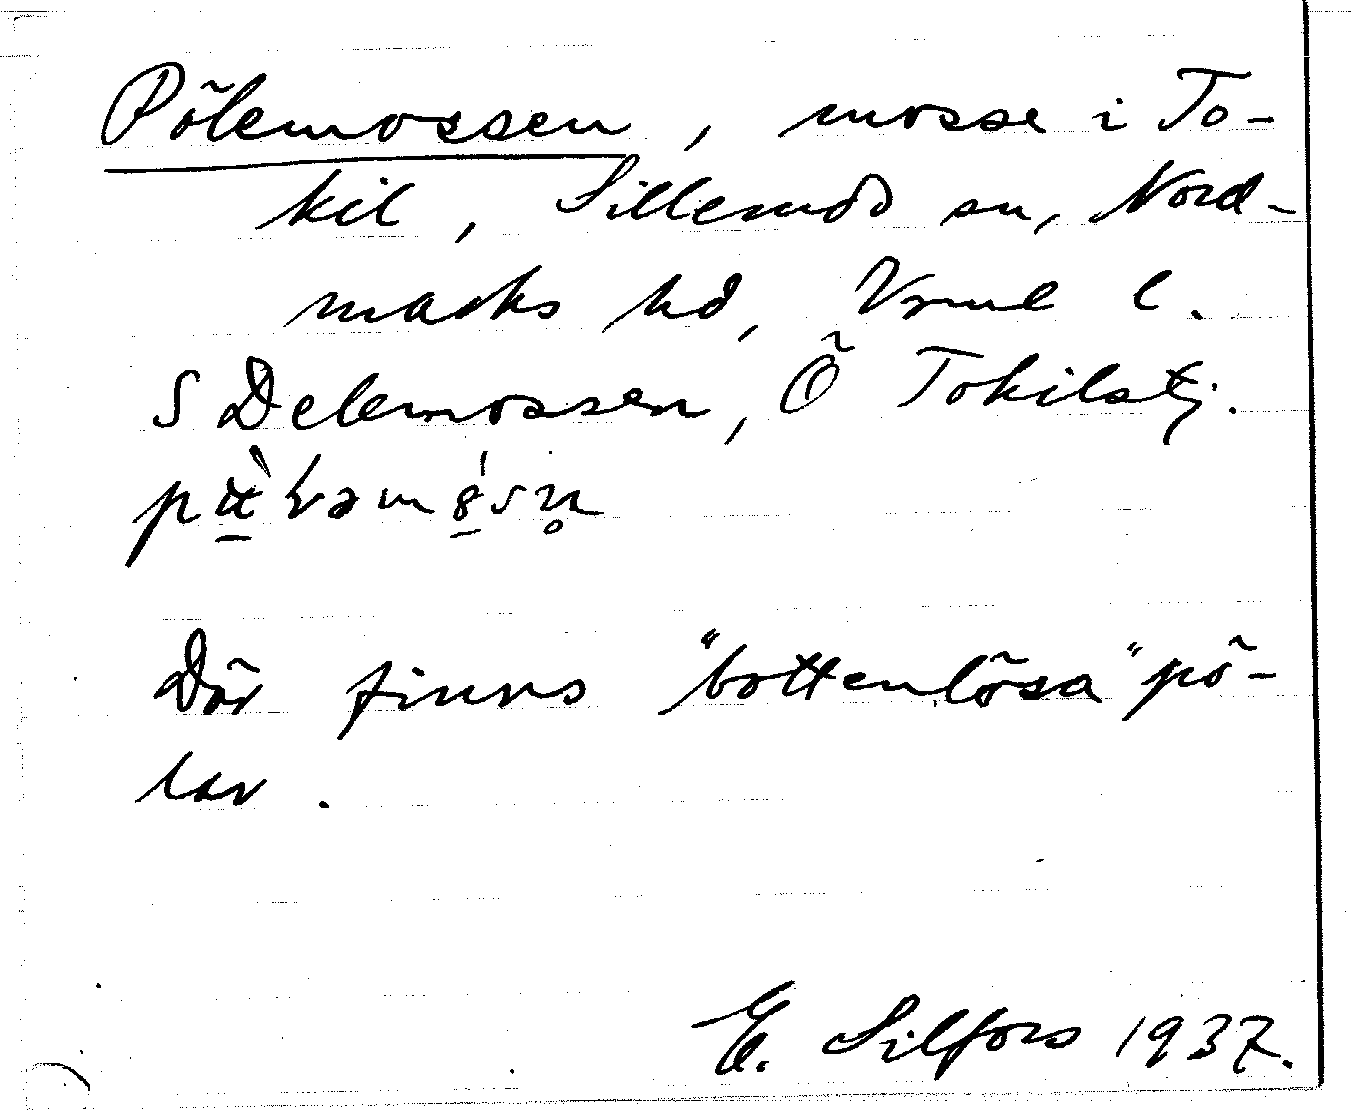 Pölemossen, mosse i To-
kil, Sillerud sn, Nord-
marks hd, Vrml l.
S Delemossen, Ö Tokilstj.
Där finns "bottenlösa" pö-
lar.
E. Silfors 1937.